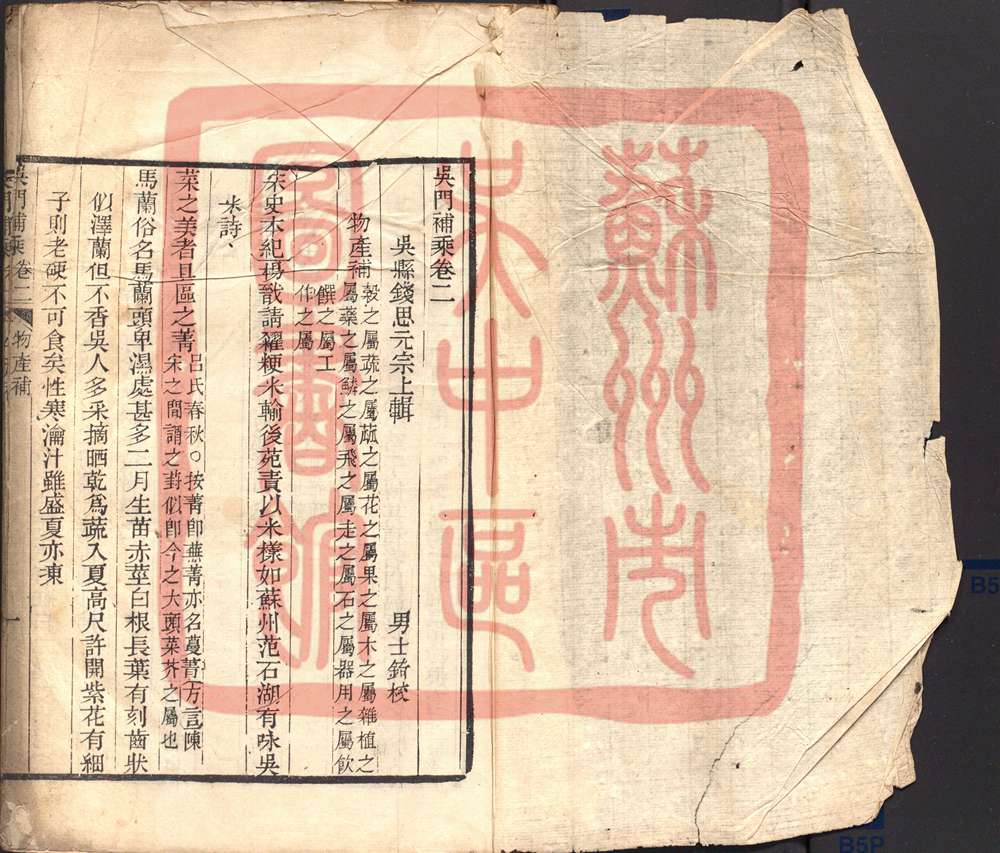 吳門補乘卷二
吳縣錢思元宗上輯 男士錡校
物產補 穀之屬蔬之屬蓏之屬花之屬果之屬木之屬雜植之
屬藥之屬鱗之屬飛之屬走之屬石之屬器用之屬飲
饌之屬工
作之屬
宋史本紀楊戩請糴粳米輸後苑責以米樣如蘇州范石湖有咏吳
米詩
菜之美者具區之菁 呂氏春秋○按菁卽蕪菁亦名蔓菁方言陳
宋之間謂之葑似卽今之大頭菜芥之屬也
馬蘭俗名馬蘭頭卑濕處甚多二月生苗赤莖白根長葉有刻齒狀
似澤蘭但不香吳人多采摘晒乾爲蔬入夏高尺許開紫花有細
子則老硬不可食矣性寒瀹汁雖盛夏亦凍
吳門補乘 卷二 物產補 一
蘇州市
吳中區
圖書館
B5
B5P